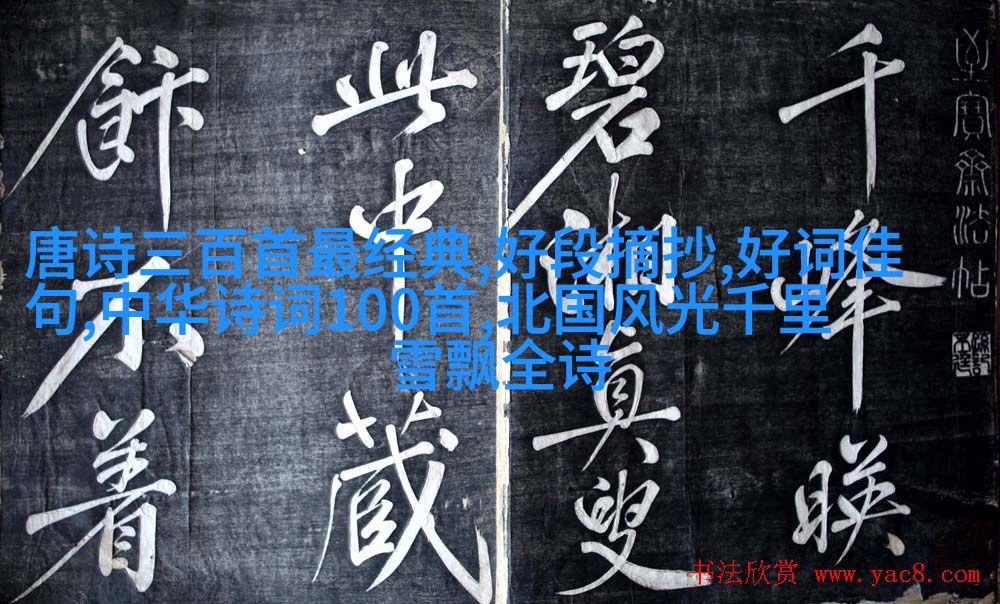 至寶齋法帖
千峰映
碧湘真叟
此中藏
飰不着
唐诗三百首最经典,好段摘抄,好词佳
句,中华诗词100首,北国风光千里
雪飘全诗
书法欣赏 www.yac8.com